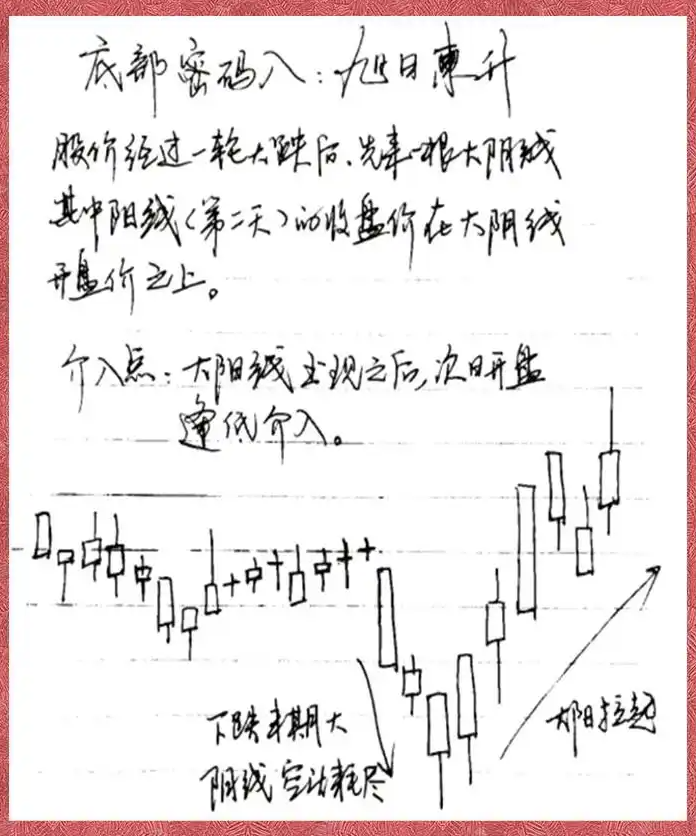 底部密码八：旭日東升
股价经过一轮大跌后、先来一根大阴线
其中阳线（第二天）的收盘价在大阴线
开盘价之上。
介入点：大阳线出现之后,次日开盘
逢低介入。
下跌末期大
阴线空动耗尽
大阳拉起